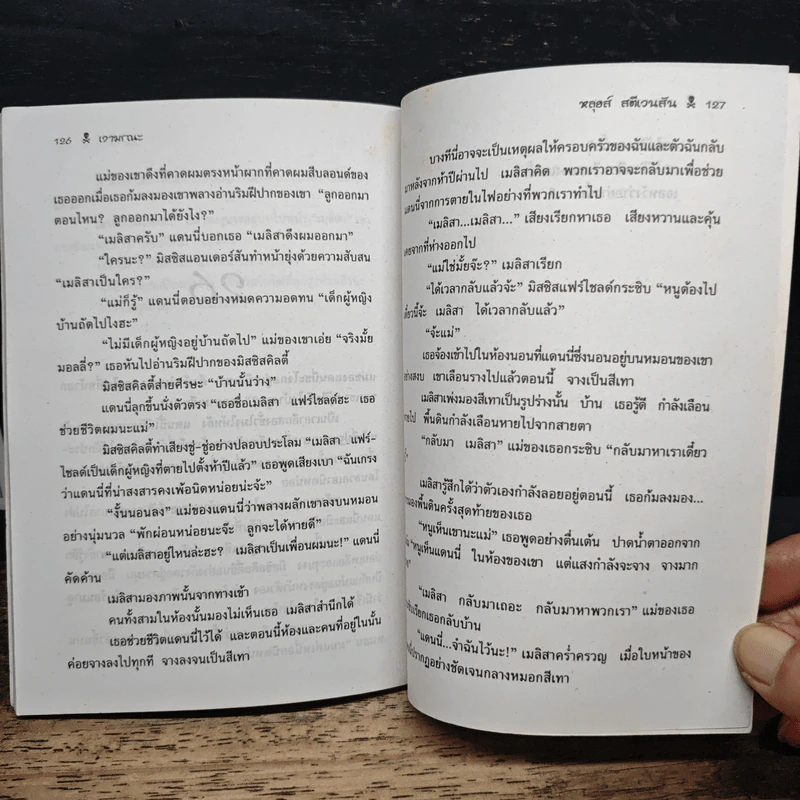 126 ☠ เงามรณะ
แม่ของเขาดึงที่คาดผมตรงหน้าผากที่คาดผมสีบลอนด์ของ
เธอออกเมื่อเธอก้มลงมองเขาพลางอ่านริมฝีปากของเขา “ลูกออกมา
ตอนไหน? ลูกออกมาได้ยังไง?”
“เมลิสาครับ” แดนนี่บอกเธอ “เมลิสาดึงผมออกมา”
“ใครนะ?” มิสซิสแอนเดอร์สันทำหน้ายุ่งด้วยความสับสน
“เมลิสาเป็นใคร?”
“แม่ก็รู้” แดนนี่ตอบอย่างหมดความอดทน “เด็กผู้หญิง
บ้านถัดไปไงฮะ”
“ไม่มีเด็กผู้หญิงอยู่บ้านถัดไป” แม่ของเขาเอ่ย “จริงมั้ย
มอลลี่?” เธอหันไปอ่านริมฝีปากของมิสซิสคิลตี้
มิสซิสคิลตี้ส่ายศีรษะ “บ้านนั้นว่าง”
แดนนี่ลุกขึ้นนั่งตัวตรง “เธอชื่อเมลิสา แฟร์ไชลด์ฮะ เธอ
ช่วยชีวิตผมนะแม่”
มิสซิสคิลตี้ทำเสียงชู่-ชู่อย่างปลอบประโลม “เมลิสา แฟร์-
ไชลด์เป็นเด็กผู้หญิงที่ตายไปตั้งห้าปีแล้ว” เธอพูดเสียงเบา “ฉันเกรง
ว่าแดนนี่ที่น่าสงสารคงเพ้อนิดหน่อยน่ะจ้ะ”
“งั้นนอนลง” แม่ของแดนนี่ว่าพลางผลักเขาลงบนหมอน
อย่างนุ่มนวล “พักผ่อนหน่อยนะจ๊ะ ลูกจะได้หายดี”
“แต่เมลิสาอยู่ไหนล่ะฮะ? เมลิสาเป็นเพื่อนผมนะ!” แดนนี่
คัดค้าน
เมลิสามองภาพนั้นจากทางเข้า
คนทั้งสามในห้องนั้นมองไม่เห็นเธอ เมลิสาสำนึกได้
เธอช่วยชีวิตแดนนี่ไว้ได้ และตอนนี้ห้องและคนที่อยู่ในนั้น
ค่อยจางลงไปทุกที จางลงจนเป็นสีเทา
หลุยส์ สตีเวนสัน ☠ 127
บางทีนี่อาจจะเป็นเหตุผลให้ครอบครัวของฉันและตัวฉันกลับ
มาหลังจากห้าปีผ่านไป เมลิสาคิด พวกเราอาจจะกลับมาเพื่อช่วย
แดนนี่จากการตายในไฟอย่างที่พวกเราทำไป
“เมลิสา...เมลิสา...” เสียงเรียกหาเธอ เสียงหวานและคุ้น
เคยจากที่ห่างออกไป
“แม่ใช่มั้ยจ๊ะ?” เมลิสาเรียก
“ได้เวลากลับแล้วจ้ะ” มิสซิสแฟร์ไชลด์กระซิบ “หนูต้องไป
เดี๋ยวนี้จ้ะ เมลิสา ได้เวลากลับแล้ว”
“จ้ะแม่”
เธอจ้องเข้าไปในห้องนอนที่แดนนี่ซึ่งนอนอยู่บนหมอนของเขา
อย่างสงบ เขาเลือนรางไปแล้วตอนนี้ จางเป็นสีเทา
เมลิสาเพ่งมองสีเทาเป็นรูปร่างนั้น บ้าน เธอรู้ดี กำลังเลือน
หายไป พื้นดินกำลังเลือนหายไปจากสายตา
“กลับมา เมลิสา” แม่ของเธอกระซิบ “กลับมาหาเราเดี๋ยว
เมลิสารู้สึกได้ว่าตัวเองกำลังลอยอยู่ตอนนี้ เธอก้มลงมอง...
มองพื้นดินครั้งสุดท้ายของเธอ
“หนูเห็นเขานะแม่” เธอพูดอย่างตื่นเต้น ปาดน้ำตาออกจาก
“หนูเห็นแดนนี่ ในห้องของเขา แต่แสงกำลังจะจาง จางมาก
“เมลิสา กลับมาเถอะ กลับมาหาพวกเรา” แม่ของเธอ
เรียกเธอกลับบ้าน
“แดนนี่...จำฉันไว้นะ!” เมลิสาคร่ำครวญ เมื่อใบหน้าของ
ปรากฏอย่างชัดเจนกลางหมอกสีเทา